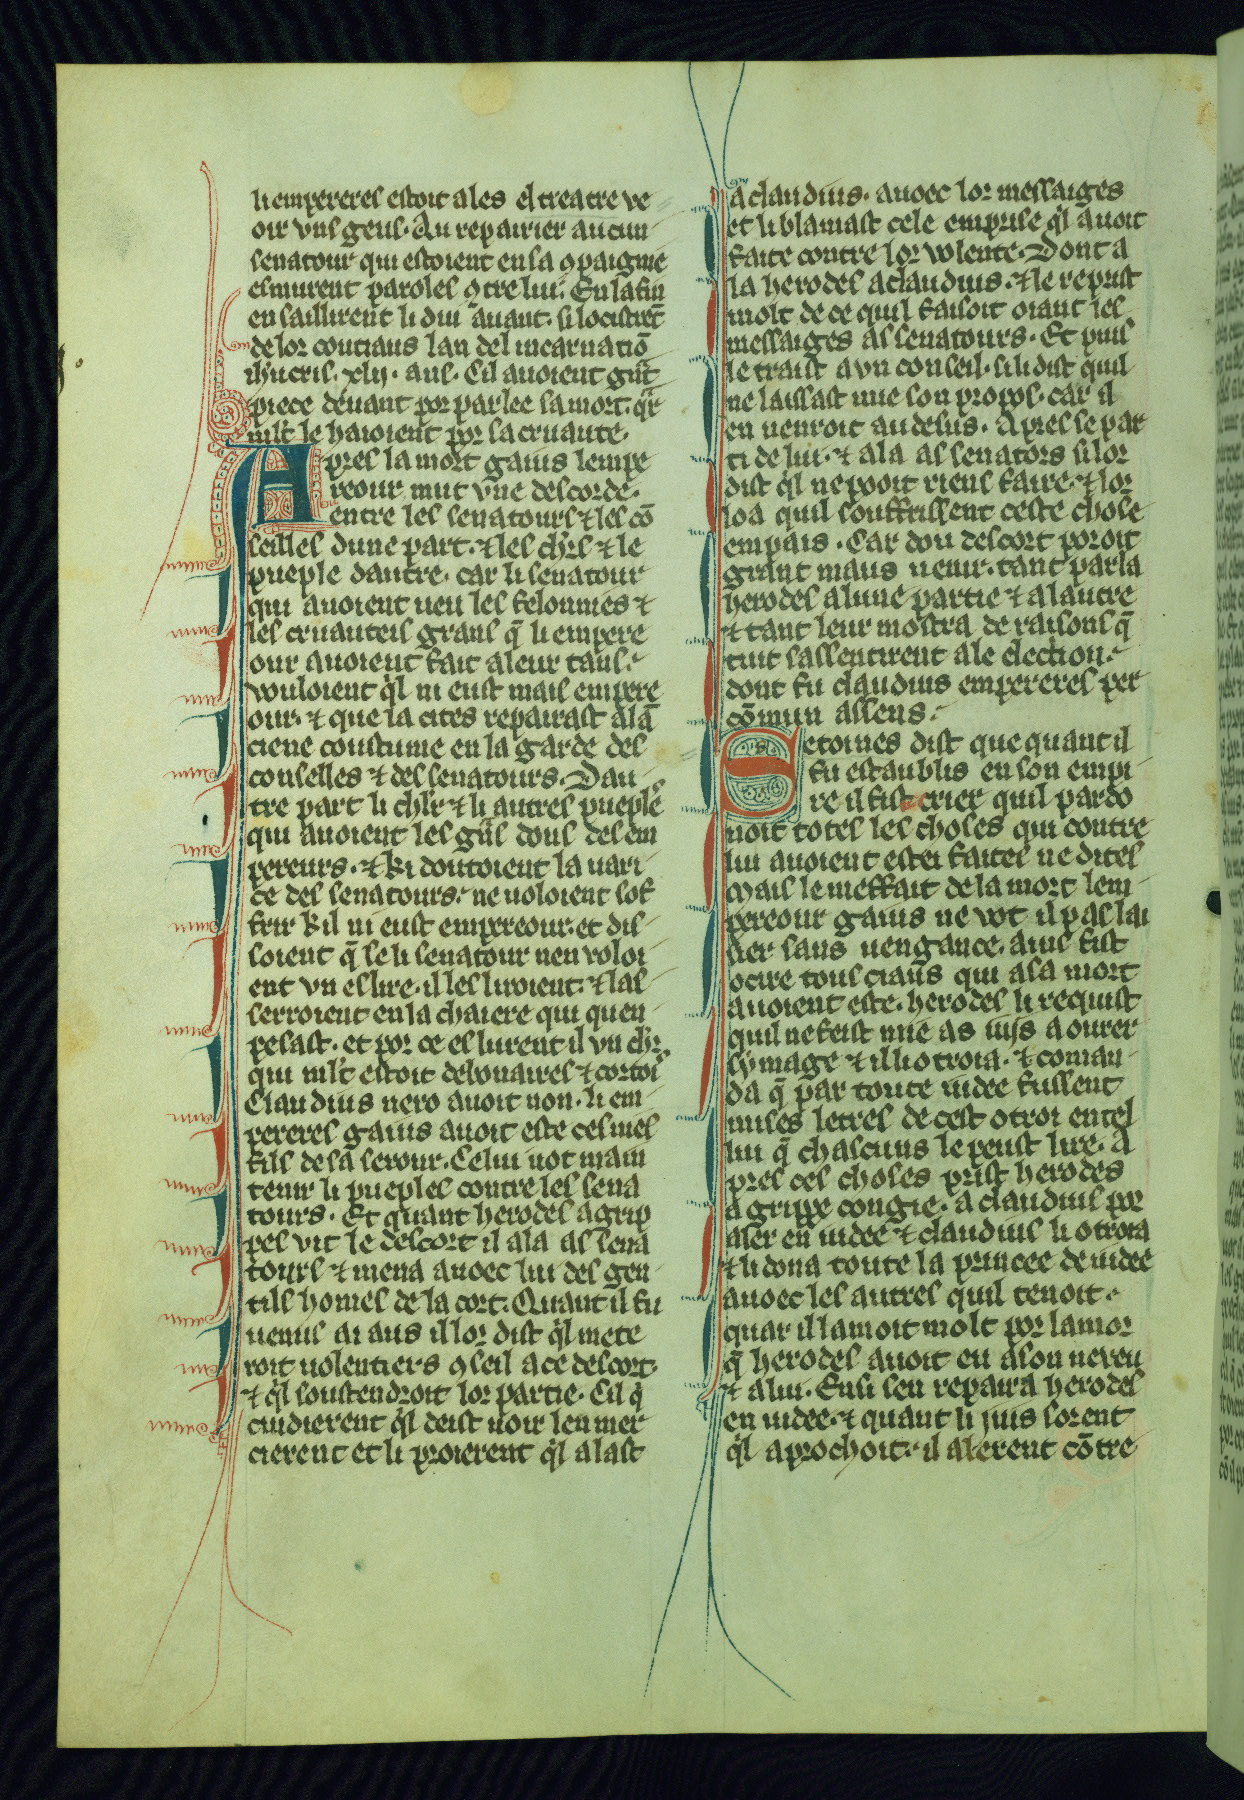 li empereres estoit ales el treatre ve
oir vns geus. Au repairier aucun
senatour qui estoient en sa ꝯpaignie
esmurent paroles ꝯtre lui. En la fin
en saillirent li dui auant. si locistrēt
de lor coutiaus lan del incarnatiō
ihucris. xlij. ans. Cil auoient gūt
piece deuant por parlee sa mort. qͣr
mlt le haioient por sa cruaute.
Apres la mort gaius lempe
reour mut vne descorde.
entre les senatours ⁊ les cō
seilles dune part. ⁊ les chrs ⁊ le
pueple dautre. car li senatour
qui auoient ueu les felonnies ⁊
les cruauteis grans q̄ li empere
our auoient fait a leur tans.
vouloient qͥl ni eust mais empere
our. ⁊ que la cites repairast a lā
ciene coustume en la garde des
conselles ⁊ des senatours. Dau
tre part li chlr ⁊ li autres pueples
qui auoient les gn̄s dous des em
pereurs. ⁊ ki doutoient la uari
ce des senatours. ne uoloient sof
frir kil ni eust empereour. et dis
soient q̄ se li senatour nen voloi
ent vn eslire. il les liroient. ⁊ las
serroient en la chaiere qui quen
pesast. et por ce eslurent il vn chr.
qui mlt estoit debonaires ⁊ cortois
Claudius nero auoit non. li em
pereres gaius auoit este ces nies
fils de sa serour. Celui uot main
tenir li pueples contre les sena
tours. Et quant herodes agrip
pes vit le descort il ala as sena
tours ⁊ mena auoec lui des gen
tils homes de la cort. Quant il fu
uenus ai aus il lor dist qͥl mete
roit uolentiers ꝯseil a ce descort.
⁊ qͥl soustendroit lor partie. Cil qͥ
cuidierent qͥl deist uoir len mer
cierent et li proierent qͥl alast
a claudius. auoec lor messaiges
et li blamast cele emprise qͥl auoit
faite contre lor volente. Dont a
la herodes a claudius. ⁊ le reprist
molt de ce quil faisoit oiant les
messaiges as senatours. Et puis
le traist a vn conseil. si li dist quil
ne laissast mie son propos. car il
en uenroit au desus. Apres se par
ti de lui. ⁊ ala as senators si lor
dist qͥl ne pooit riens faire. ⁊ lor
loa quil souffrissent ceste chose
em pais. Car dou descort poroit
grant maus uenir. tant parla
herodes a lune partie ⁊ a lautre
⁊ tant leur mostra de raisons q̄
tuit sassentirent a le election.
dont fu claudius empereres per
cōmun assens.
Setoines dist que quant il
fu estaublis en son empi
re il fist crier quil pardo
noit totes les choses qui contre
lui auoient estei faites ne dites
Mais le meffait de la mort lem
pereour gaius ne vot il pas lai
sier sans uengance. ains fist
ocire tous ciaus qui a sa mort
auoient este. herodes li requist
quil ne feist mie as iuis aourer
symage ⁊ il li otroia. ⁊ coman
da q̄ par toute iudee fussent
mises letres de cest otroi en tel
liu q̄ chascuns le peust lire. A
pres ces choses prist herodes
agrippe congie. a claudius por
aler en iudee ⁊ claudius li otroia
⁊ li dona toute la princee de iudee
auoec les autres quil tenoit.
quar il lamoit molt por lamor
q̄ herodes auoit eu a son neueu
⁊ a lui. Ensi sen repaira herodes
en iudee. ⁊ quant li juis sorent
qͥl aprochoit. il alerent cōtre